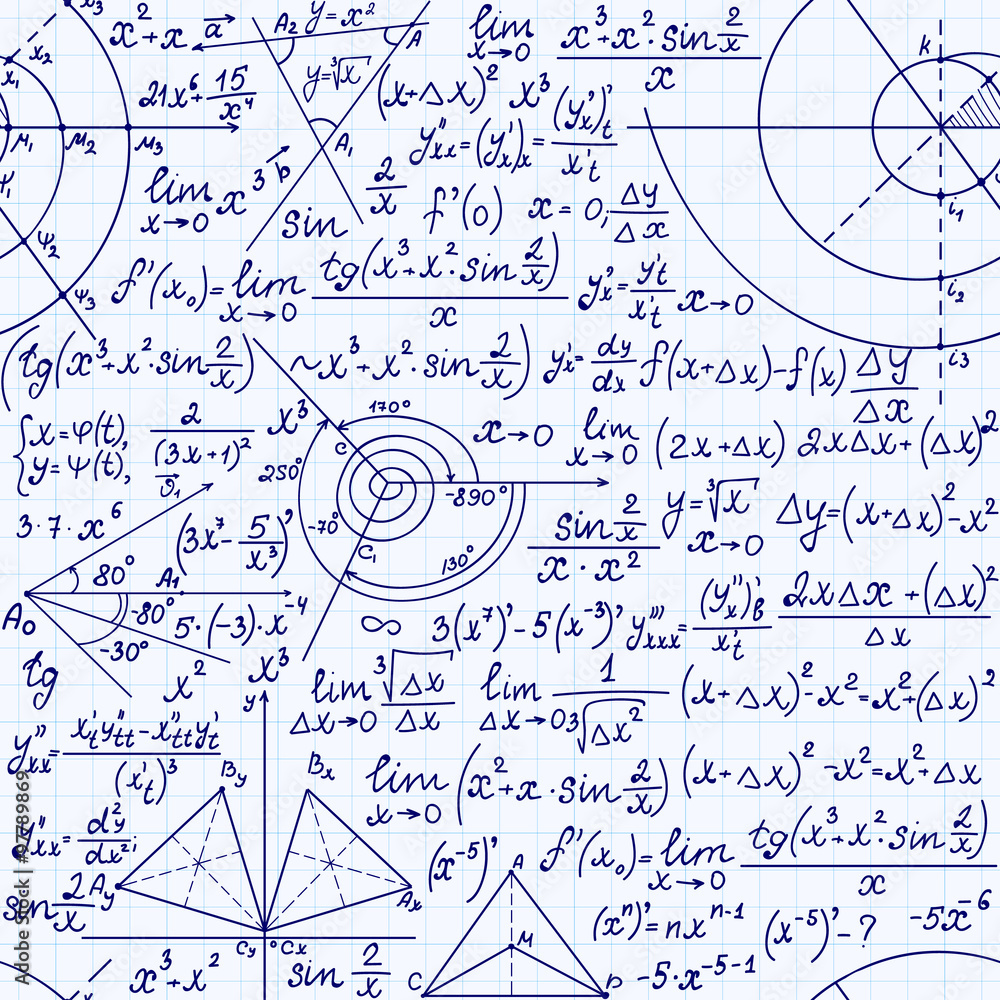 x₃ x² + x a⃗ A₂ y = x² A lim x→0 (x³ + x² · sin 2/x)/x k
x₂ x₁ 21x⁶ + 15/x⁴ y = ∛x (x + Δx)² x³
M₁ M₂ M₃ A₁ y''ₓₓ = (y'ₓ)ₓ = (y'ₓ)'ₜ/x'ₜ
lim x→0 x³ p 2/x f'(0) x = 0; Δy/Δx i₁
ψ₁ ψ₂ sin
ψ₃ f'(x₀) = lim x→0 tg(x³ + x² · sin 2/x)/x y'ₓ = y'ₜ/x'ₜ x→0 i₂
(tg(x³ + x² · sin 2/x) ~ x³ + x² · sin 2/x) y'ₓ = dy/dx f(x + Δx) - f(x) Δy/Δx i₃
{x = φ(t), y = ψ(t), 2/(3x + 1)² x³ c 170° x→0 lim x→0 (2x + Δx) 2xΔx + (Δx)²
ϑ₁ 250° -890°
3 · 7 · x⁶ (3x⁷ - 5/x³)' -70° c₁ 130° sin 2/x / x · x² y = ∛x x→0 Δy = (x + Δx)² - x²
80° A₁
A₀ -80° 5 · (-3) · x⁻⁴ ∞ 3(x⁷)' - 5(x⁻³)' y'''ₓₓₓ = (y''ₓ)'ᵦ/x'ₜ (2xΔx + (Δx)²)/Δx
-30°
tg x² x³ lim Δx→0 ∛Δx/Δx lim Δx→0 1/∛Δx² (x + Δx)² - x² = x² + (Δx)²
y
y''ₓₓ = (x'ₜy''ₜₜ - x''ₜₜy'ₜ)/(x'ₜ)³ Bᵧ Bₓ lim x→0 (x² + x · sin 2/x) (x + Δx)² - x² = x² + Δx
y''ₓₓ = d²y/dx²; (x⁻⁵)' A f'(x₀) = lim x→0 tg(x³ + x² · sin 2/x)/x
sin 2/x Aᵧ Aₓ
Cᵧ Cₓ M (xⁿ)' = nxⁿ⁻¹ (x⁻⁵)' - ? -5x⁻⁶
x³ + x² sin 2/x C -5 · x⁻⁵⁻¹
Adobe Stock | #97789869